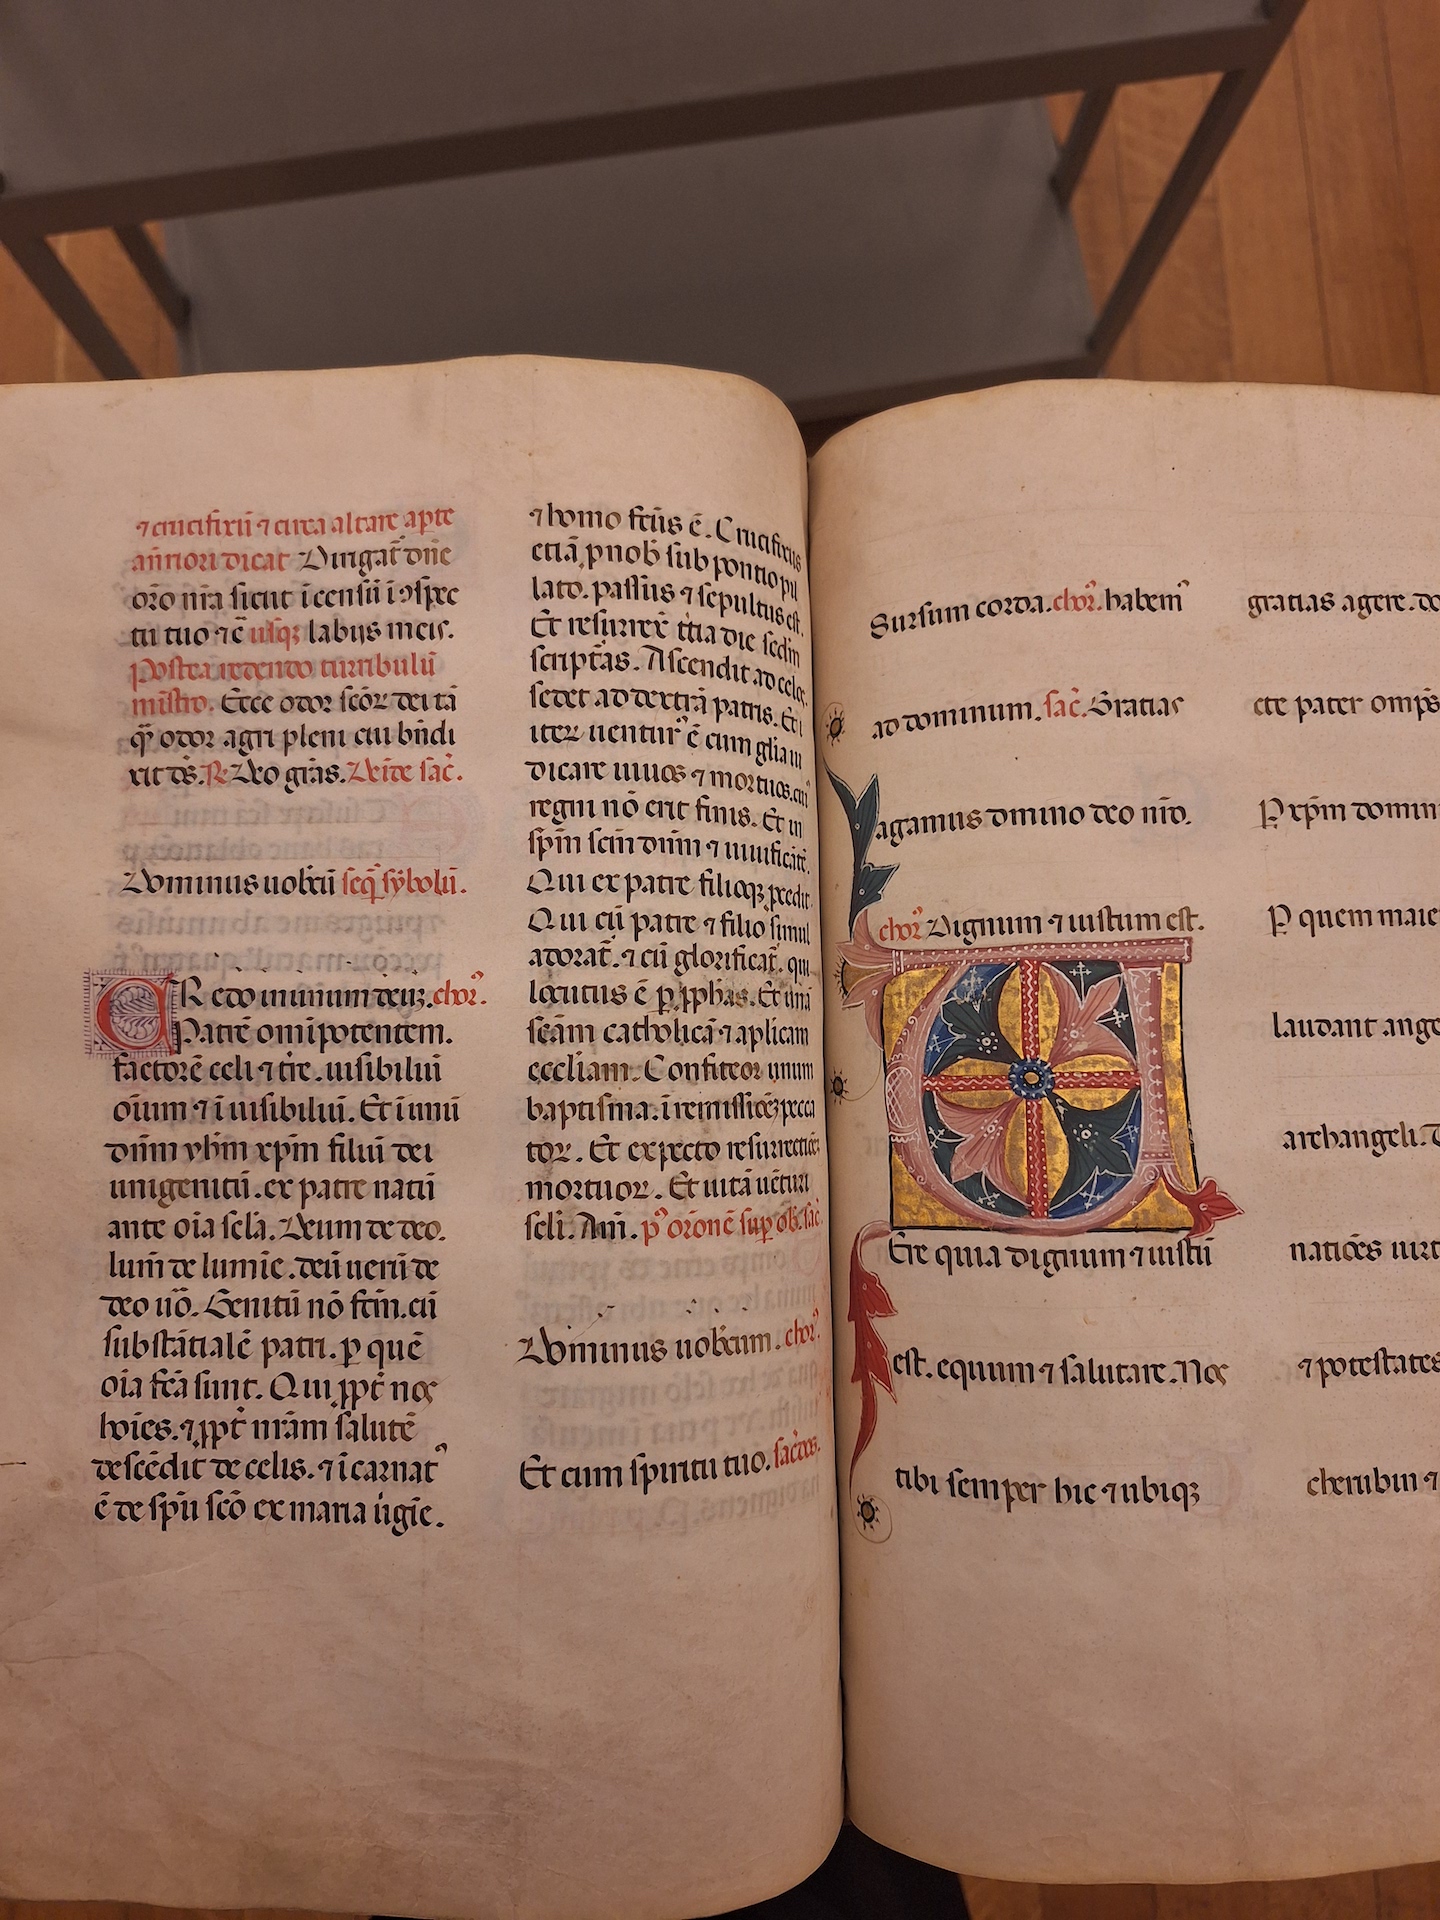 ⁊ crucifixū ⁊ circa altare apte
añtiori dicat Dirigat̄ dñe
oro nr̄a sicut īcensū ī ↄspec
tu tuo ⁊ c̄ usqꝫ labijs meis.
Postea reddendo turribulū
mīstro. Ecce odor scōꝝ dei tā
q̄ꝫ odor agri pleni cui bn̄di
xit ds̄. ℟ Deo grās. Deīde sac̄.
Dominus uobcū seq̄ sȳbolū.
CR edo in unum deuꝫ. chorꝰ.
Patrē omīpotentem.
factorē celi ⁊ tr̄e. uisibiliū
oīum ⁊ ī uisibiliū. Et ī unū
dn̄m yhm̄ xp̄m filiū dei
unigenitū. ex patre natū
ante oīa scl̄a. Deum de deo.
lum̄ de lumīe. deū uerū de
deo uō. Genitū nō fc̄m. cū
substātialē patri. ꝑ quē
oīa fc̄a sunt. Qui ꝓpt̄ nos
hoīes. ⁊ ꝓpt̄ nr̄am salutē
descēdit de celis. ⁊ īcarnatꝰ
ē de spū scō ex maria ūgīe.
⁊ homo fc̄us ē. Crucifixus
etiā ꝓ nob̄ sub pontio pil
lato. passus ⁊ sepultus est.
Et resurrex̄ tt̄ia die sc̄dm
scriptās. Ascendit ad celos
sedet ad dextrā patris. Et i
iteꝝ uenturꝰ ē cum glīa iu
dicare uiuos ⁊ mortuos. cuiꝰ
regni nō erit finis. Et in
spm̄ scm̄ dn̄m ⁊ uiuificātē.
Qui ex patre filioqꝫ ꝓcedit.
Qui cū patre ⁊ filio simul
adorat̄. ⁊ cū glorificat̄. qui
locutus ē ꝑ ꝓphas. Et unā
scām catholicā ⁊ aplicam
eccliam. Confiteor unum
baptisma. ī remissiōeꝫ pecca
toꝝ. Et expecto resurrectiōeꝫ
mortuoꝝ. Et uitā uēturi
scl̄i. Am̄. pꝰ orōnē suꝑ ob. sac̄
Dominus uobcum. chorꝰ.
Et cum spiritu tuo. sac̄dos.
Sursum corda. chorꝰ. habemꝰ
ad dominum. sac̄. Gratias
agamus domino deo nr̄o.
chorꝰ Dignum ⁊ iustum est.
U Ere quia dignum ⁊ iustū
est. equum ⁊ salutare. Nos
tibi semper hic ⁊ ubiqꝫ
gratias agere. do
cte pater omps̄
P xp̄m domin
P quem maie
laudant ange
archangeli.
natiōes uirt
⁊ potestates
cherubin ⁊